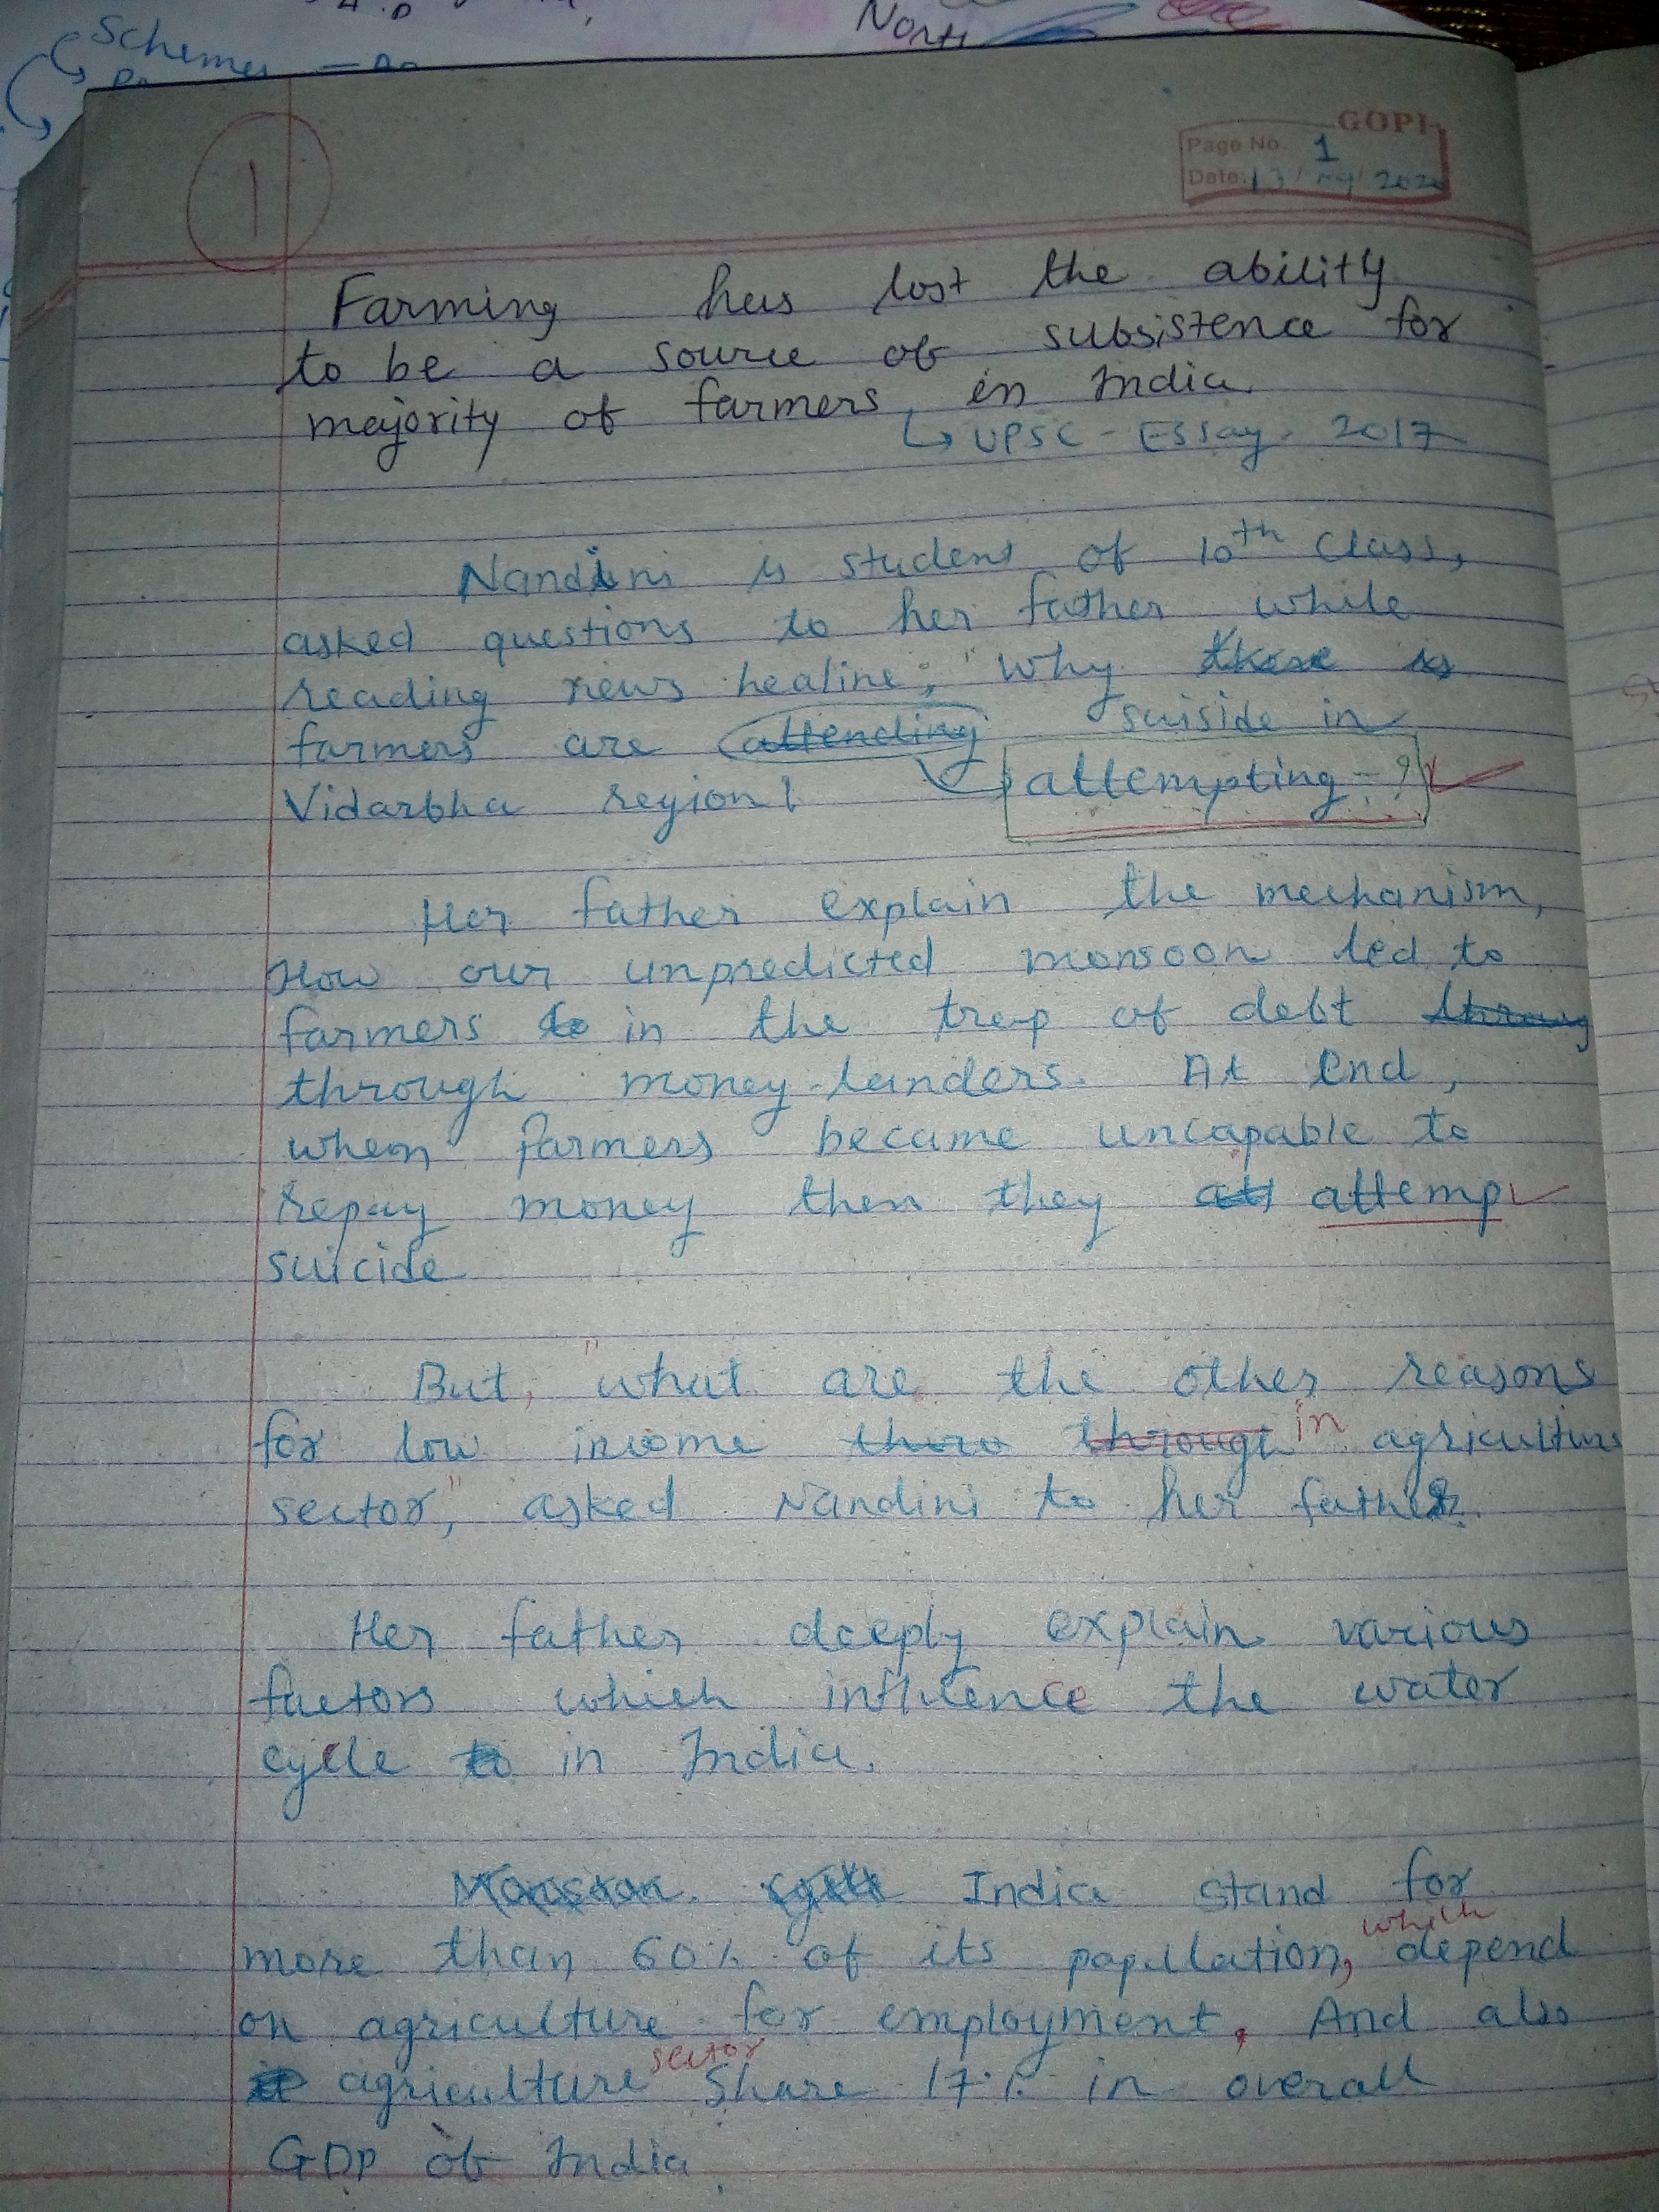 Schemes -
North
1
GOPI
Page No. 1
Date: 13/ /2020
Farming has lost the ability
to be a source of subsistence for
majority of farmers, in India.
↳ UPSC - Essay - 2017
Nandini is student of 10th Class,
asked questions to her father while
reading news healine; "Why there is
farmers are attending suiside in
attempting - ?
Vidarbha region!
Her father explain the mechanism,
How our unpredicted monsoon led to
farmers to in the trap of debt throug
through money-landers. At end,
when farmers became uncapable to
repay money then they att attemp
suicide
But, "what are the other reasons
for low income throu through in agriculture
sector," asked Nandini to her father.
Her father deeply explain various
factors which influence the water
cycle to in India.
Monsoon cycle India stand for
more than 60% of its population, which depend
on agriculture for employment. And also
agriculture sector share 17% in overall
GDP of India.